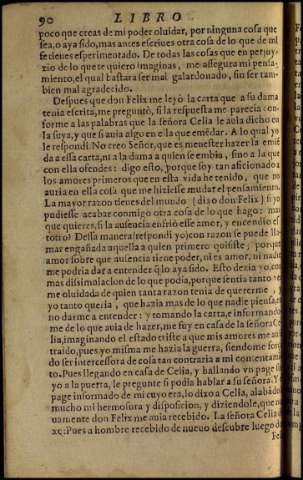 90 LIBRO
poco que creas de mi poder oluidar, por ninguna cosa que
sea, o aya sido, mas antes escriues otra cosa de lo que de mi
se tienes esperimentado. De todas las cosas que en perjuy-
zio de lo que te quiero imaginas, me assegura mi pensa-
miento, el qual bastara ser mal galardonado, sin ser tam-
bien mal agradecido.
Despues que don Felix me leyò la carta que a su dama
tenia escrita, me preguntò, si la respuesta me parecia con-
forme a las palabras que la señora Celia le auia dicho en
la suya, y que si auia algo en ella que emẽdar. A lo qual yo
le respondi. No creo Señor, que es menester hazer la emiẽ
da a essa carta, ni a la dama a quien se embia, sino a la que
con ella ofendes: digo esto, porque soy tan aficionado a
los amores primeros que en esta vida he tenido, que no
auria en ella cosa que me hiziesse mudar el pensamiento.
La mayor razon tienes del mundo (dixo don Felix) si yo
pudiesse acabar conmigo otra cosa de lo que hago: mas
que quieres, si la ausencia enfriò esse amor, y encendiò es
totro? Dessa manera (respondi yo) con razon se puede lla-
mar engañada aquella a quien primero quisiste; porque
amor sobre que ausencia tiene poder, ni es amor, ni nadie
me podria dar a entender q̃ lo aya sido. Esto dezia yo, con
mas dissimulacion de lo que podia, porque sentia tanto ver
me oluidada de quien tanta razon tenia de quererme, y
yo tanto queria, que hazia mas de lo que nadie piensa, en
no darme a entender: y tomando la carta, e informando
me de lo que auia de hazer, me fuy en casa de la señora Ce
lia, imaginando el estado triste a que mis amores me auian
traido, pues yo misma me hazia la guerra, siendo me força
do ser intercessora de cosa tan contraria a mi contentamiẽ
to. Pues llegando en casa de Celia, y hallando vn page su
yo a la puerta, le pregunte si podia hablar a su señora. Y el
page informado de mi cuyo era, lo dixo a Celia, alabãdole
mucho mi hermosura y disposicion, y diziendole, que nue
uamente don Felix me auia recebido. La señora Celia di
xo: Pues a hombre recebido de nueuo descubre luego don
Feli